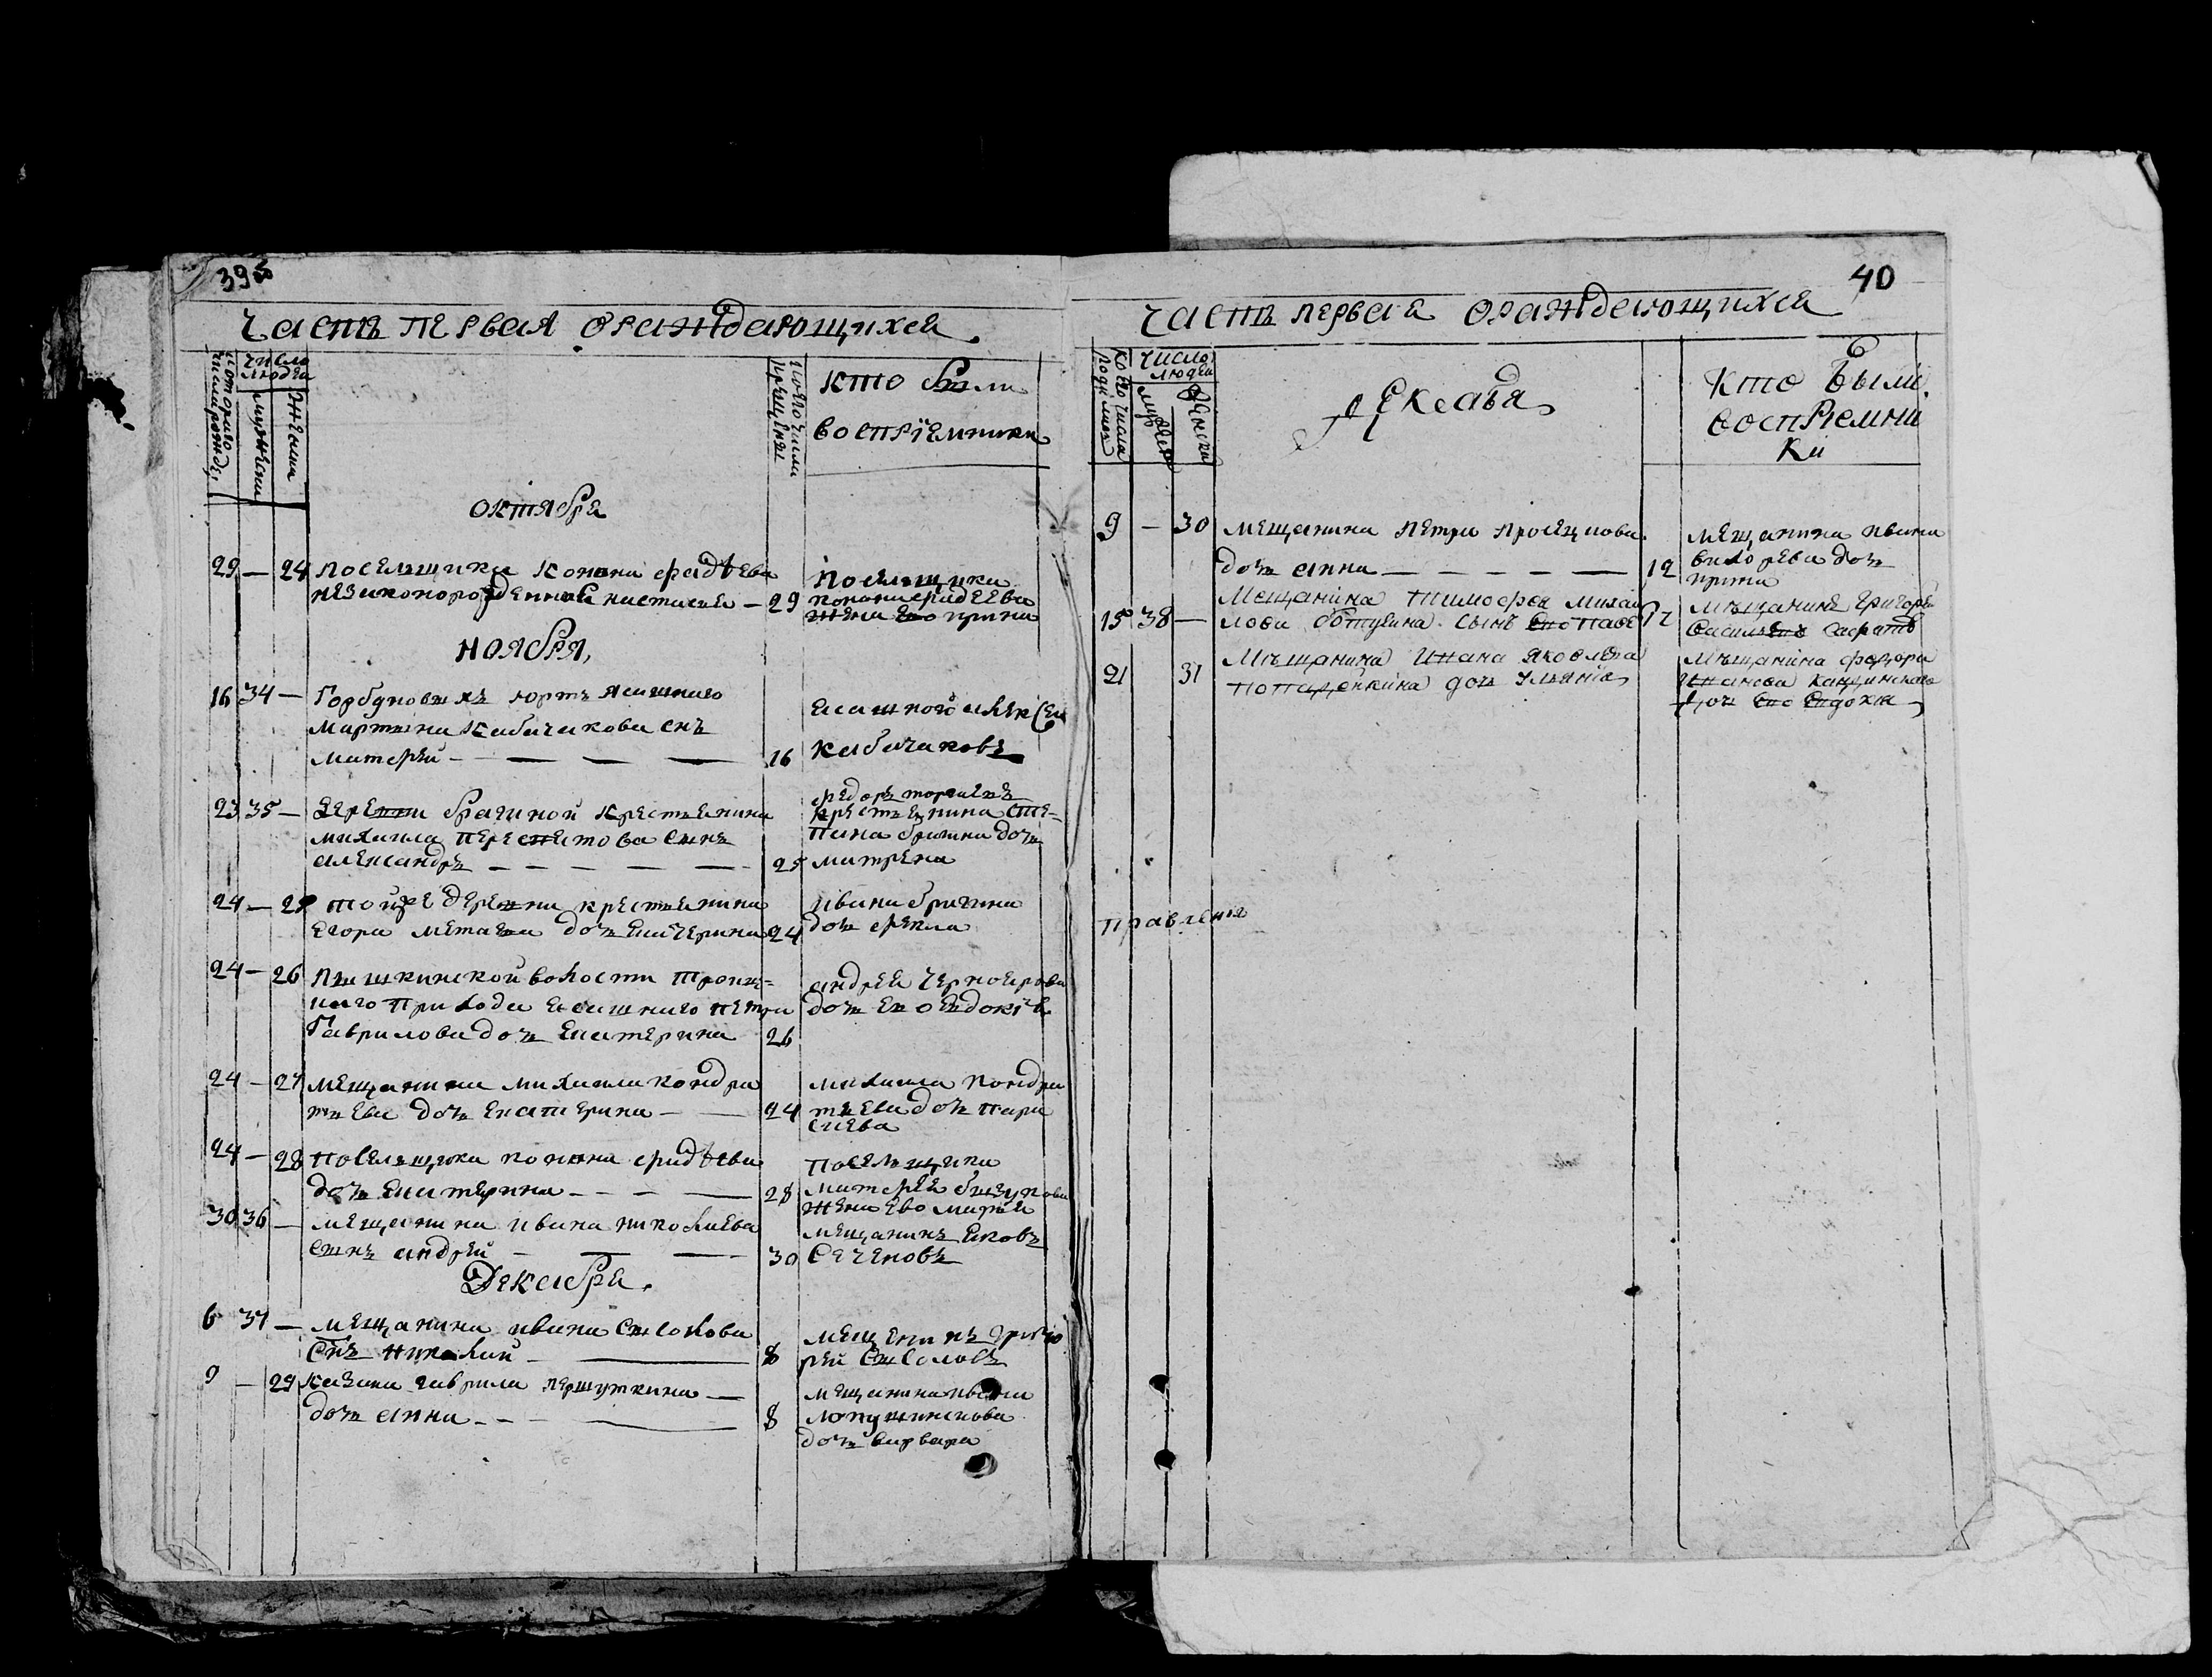 39
часть первая ораждающихся
число людей
мужеска
женска
кто были
воспрїемники
октября
29 — 24 поселыцика Конана фадѣева
незаконорожденная настасея — 29
Поселыцика
конана фадеева
жена ево ирина
ноября
16 34 — Горбуновых юртъ ясашного
мартына Кабачакова снъ
матфей — 16
ясашного алексей
кабачаковъ
23 35 — деревни брагиной крестьянина
михаила пересветова сынъ
александръ — 25
федоръ
крестьянина сте-
пана брагина дочь
матрена
24 — 25 той же деревни крестьянина
егора дочь екатерина 24
ивана брагина
дочь фекла
24 — 26 Пышкинской волости троиц-
каго прихода ясашного петра
Гаврилова дочь екатерина 26
андрея
дочь ево евдокїя
24 — 27 мещанина михаила кондра
тьева дочь екатерина — 24
михаила кондра
тьева дочь пара
скева
24 — 28 поселыцика конана фадѣева
дочь екатерина — 28
поселыцика
матфея
жена ево марья
30 36 — мещанина ивана николаева
сынъ андрей — 30
мещанинъ яковъ
Сеченовъ
Декабря
6 37 — мещанина ивана Соколова
снъ николай — 8
мещенинъ григо
рей Соколовъ
9 — 29 казака гаврила першуткина —
дочь анна — 8
мещанина ивана
лопушинскова
дочь варвара
40
часть первая ораждающихся
число людей
мужеск
женска
Декабря
кто были
воспрїемни
ки
9 — 30 мещанина петра просецкова
дочь анна — 12
мещанина ивана
вихорева дочь
ирина
15 38 — Мещанина тимофея михаи
лова обтухина сынъ ево павел 17
Мѣщанинъ Григорей
Васильевъ Сафатъ
21 31 Мѣщанина Ивана Яковлева
попаденкина дочь Ульяния
Мѣщанина федора
Иванова Кандинскаго
дочь ево Евдокия
правления